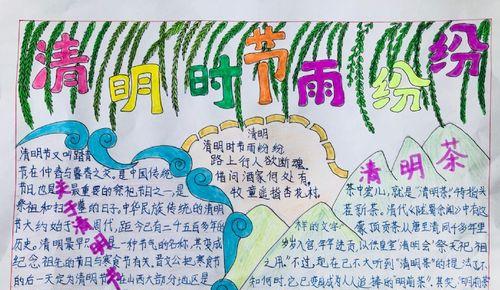 清明时节雨纷纷
清明
清明时节雨纷纷
路上行人欲断魂
借问酒家何处有
牧童遥指杏花村
清明节又叫踏青
节在仲春与暮春之交是中国传统
节日也是最重要的祭祀节日之一是
祭祖和扫墓的日子。中华民族传统的清明
节大约始于周代,距今已有二千五百多年的
历史。清明最早是一种节气的名称,其变成
纪念祖先的节日与寒食节有关。晋文公把寒食节
的后一天定为清明节在山西大部分地区是
关于清明节
清明茶
茶中
就是“清明茶”特指
在新茶。清代
中有这
蒙顶贡茶从唐至清风千余年
岁入宫,年年进贡,以供皇室清明会“祭天祀祖
之用”不过,现在已不大听到“清明茶”的提法
和何时,它已变成有人人追捧的“明前茶”其实“明前茶
样的文字